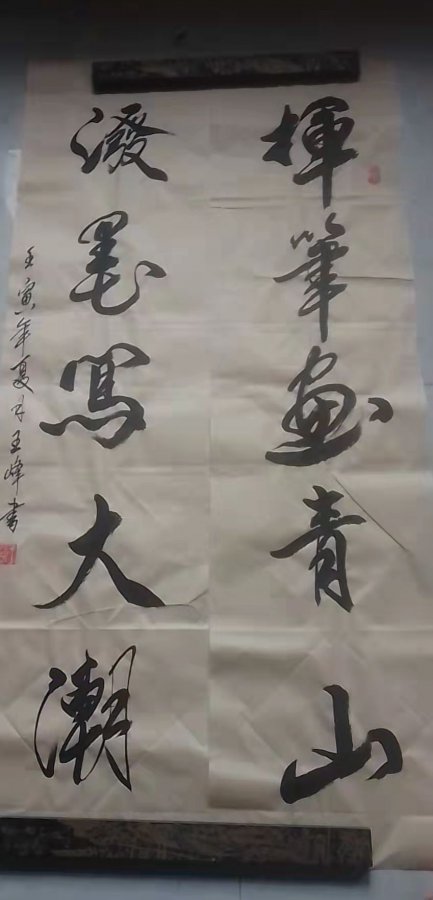 揮筆畫青山
潑墨寫大潮
壬寅年夏月王峰書